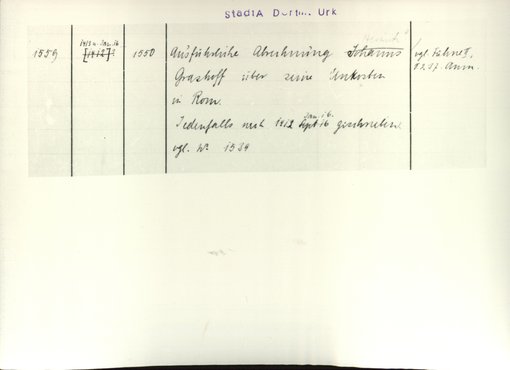 StadtA Dortm. Urk
1559
1412 n. Jan. 16
[1412]?
1550
Ausführliche Abrechnung Johanns
Grashoff über seine Unkosten
in Rom.
Jedenfalls nach 1412 Sept 16 geschrieben.
Jan. 16.
vgl. Nr 1534
vgl. Fahne II,
S. 237. Anm.